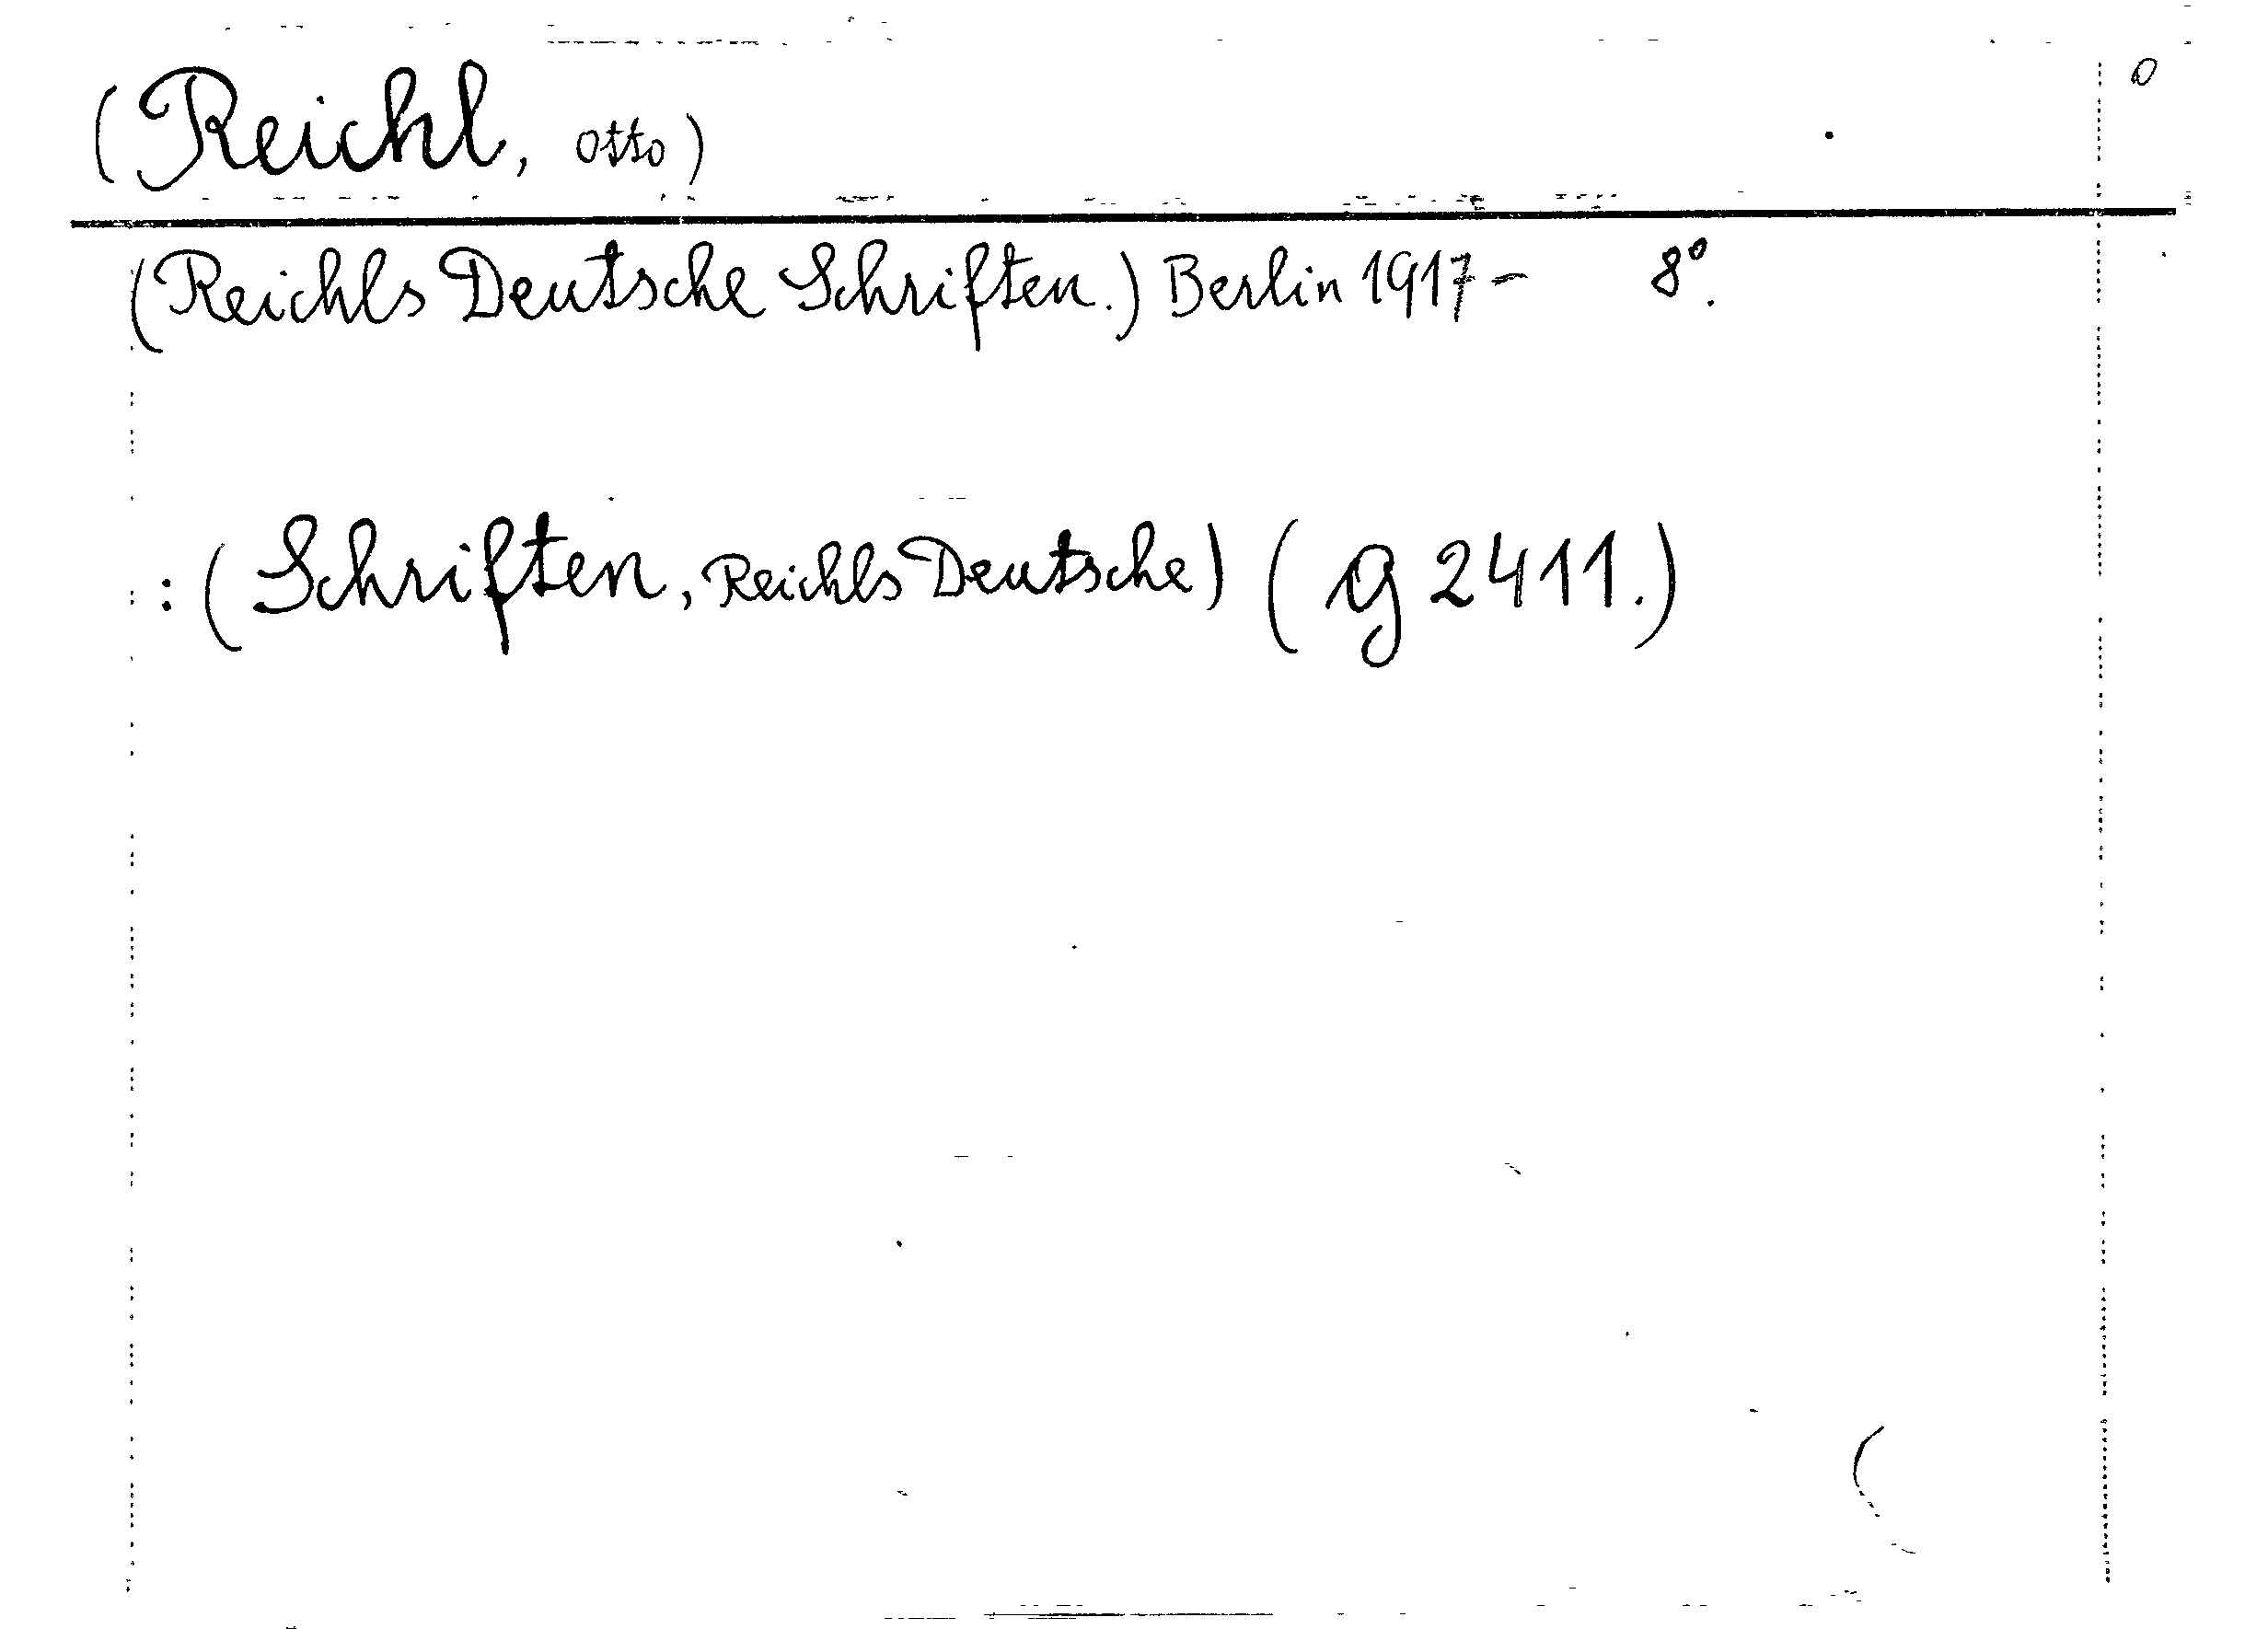 (Reichl, Otto)
(Reichls Deutsche Schriften.) Berlin 1917- 8°.
: (Schriften, Reichls Deutsche) (g 2411.)